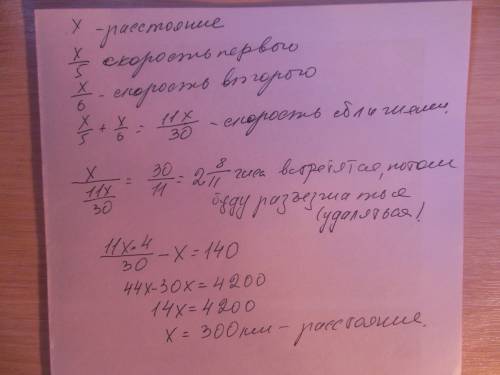 x - расстояние
x/5 скорость первого
x/6 - скорость второго
x/5 + x/6 = 11x/30 - скорость сближения.
x/(11x/30) = 30/11 = 2 8/11 часа встретятся, потом
буду разъезжаться
(удаляться).
11x·4/30 - x = 140
44x-30x = 4200
14x = 4200
x = 300км - расстояние.